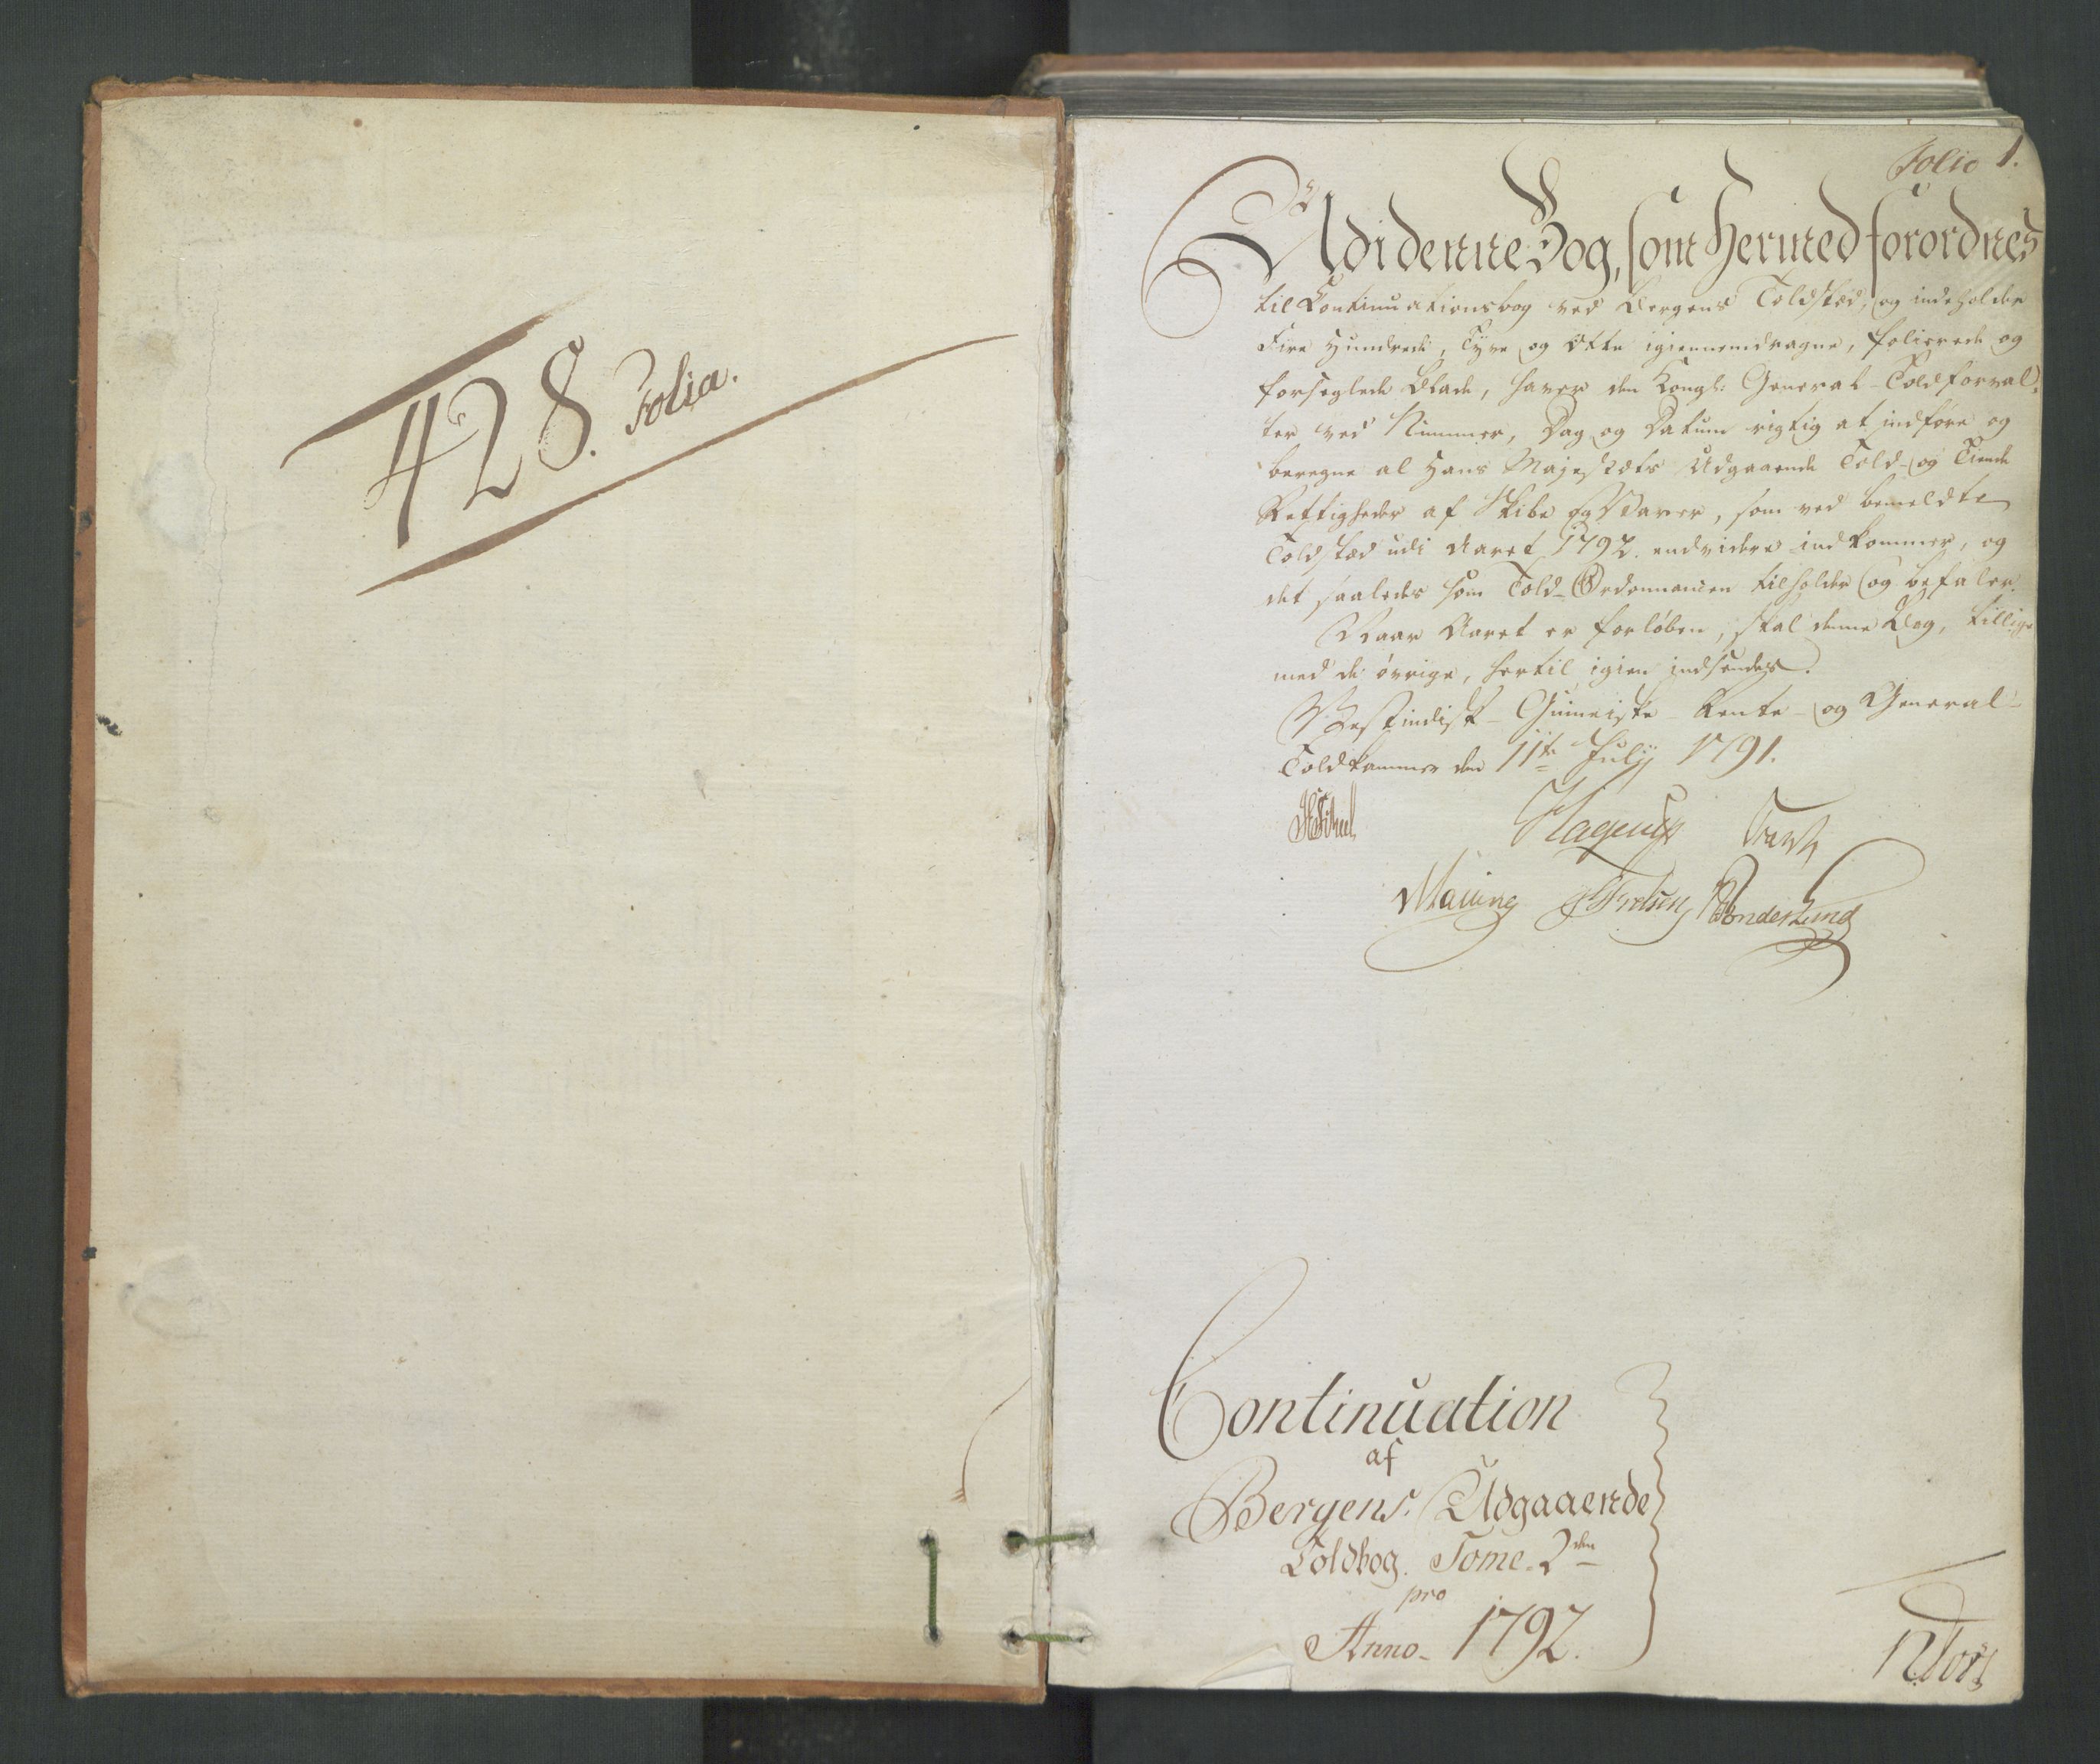 428. Folia.
Folio 1.
Udi denne Bog, som hermed forordnes
til Continuationsbog ved Bergens Toldsted, og indeholder
Fire Hundrede, Tyve og Otte igiennemdragne, folierede og
forseglede Blade, haver den Kongl: General-Toldforval-
ter ved Nummer, Dag og Datum rigtig at indføre og
beregne al Hans Majestæts Udgaaende Told- og Tiende
Rettigheder af Skibe og Varer, som ved bemeldte
Toldsted udi Aaret 1792. endvidere indkommer, og
det saaledes som Told-Ordonnancen tilholder og befaler.
Naar Aaret er forløben, skal denne Bog, tillige
med de øvrige, hertil igien indsendes.
Vestindisk- Guineiske- Rente- og General-
Toldkammer den 11te Julij 1791.
Hagerup
Continuation
af
Bergens Udgaaende
Toldbog. Tome. 2den
pro
Anno- 1792.